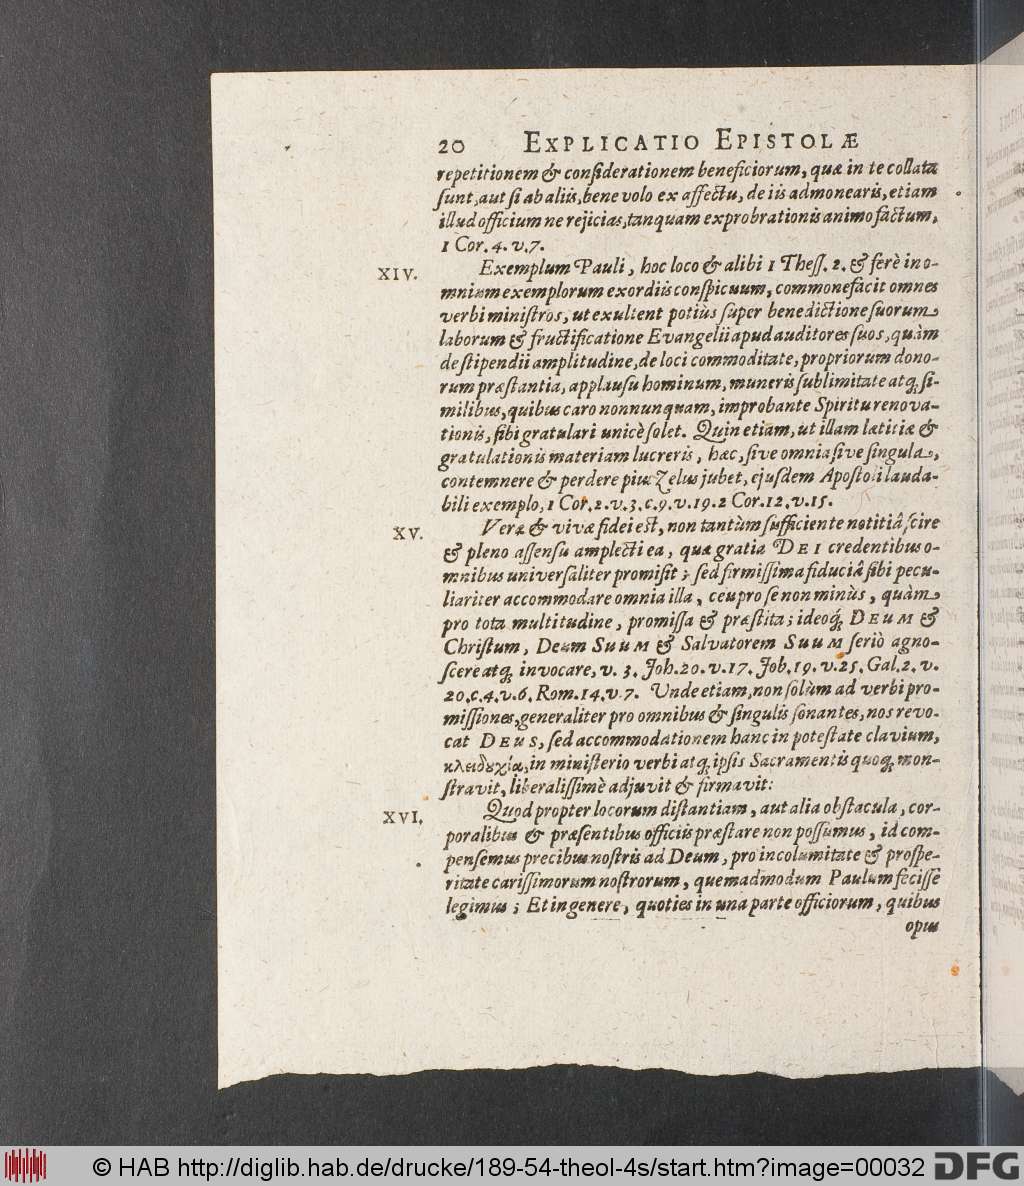 20 EXPLICATIO EPISTOLÆ
repetitionem & considerationem beneficiorum, quæ in te collata
sunt, aut si ab aliis, benevolo ex affectu, de iis admonearis, etiam
illud officium ne rejicias, tanquam exprobrationis animo factum,
1 Cor. 4. v. 7.
XIV. Exemplum Pauli, hoc loco & alibi 1 Thess. 2. & ferè in o-
mnium exemplorum exordiis conspicuum, commonefacit omnes
verbi ministros, ut exultent potiùs super benedictione suorum
laborum & fructificatione Evangelii apud auditores suos, quàm
de stipendii amplitudine, de loci commoditate, propriorum dono-
rum præstantia, applausu hominum, muneris sublimitate atq; si-
milibus, quibus caro nonnunquam, improbante Spiritu renova-
tionis, sibi gratulari unicè solet. Quin etiam, ut illam lætitiæ &
gratulationis materiam lucreris, hæc, sive omnia sive singula,
contemnere & perdere pius Zelus jubet, ejusdem Apostoli lauda-
bili exemplo, 1 Cor. 2. v. 3. c. 9. v. 19. 2 Cor. 12. v. 15.
XV. Veræ & vivæ fidei est, non tantùm sufficiente notitiâ scire
& pleno assensu amplecti ea, quæ gratia DEI credentibus o-
mnibus universaliter promisit; sed firmissima fiduciâ sibi pecu-
liariter accommodare omnia illa, ceu pro se non minùs, quàm
pro tota multitudine, promissa & præstita; ideoq; DEUM &
Christum, Deum SUUM & Salvatorem SUUM seriò agno-
scere atq; invocare, v. 3. Joh. 20. v. 17. Job. 19. v. 25. Gal. 2. v.
20. c. 4. v. 6. Rom. 14. v. 7. Unde etiam, non solùm ad verbi pro-
missiones, generaliter pro omnibus & singulis sonantes, nos revo-
cat DEUS, sed accommodationem hanc in potestate clavium,
κλειδουχία, in ministerio verbi atq; ipsis Sacramentis quoq; mon-
stravit, liberalissimè adjuvit & firmavit:
XVI. Quod propter locorum distantiam, aut alia obstacula, cor-
poralibus & præsentibus officiis præstare non possumus, id com-
pensemus precibus nostris ad Deum, pro incolumitate & prospe-
ritate carissimorum nostrorum, quemadmodum Paulum fecisse
legimus; Et in genere, quoties in una parte officiorum, quibus
opus
© HAB http://diglib.hab.de/drucke/189-54-theol-4s/start.htm?image=00032 DFG